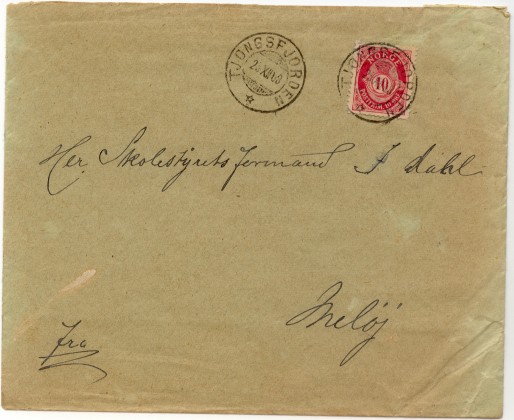 TJONGSFJORDEN
NORGE
10
Her. Skolestyrets formand I Dahl
Meløj
fra